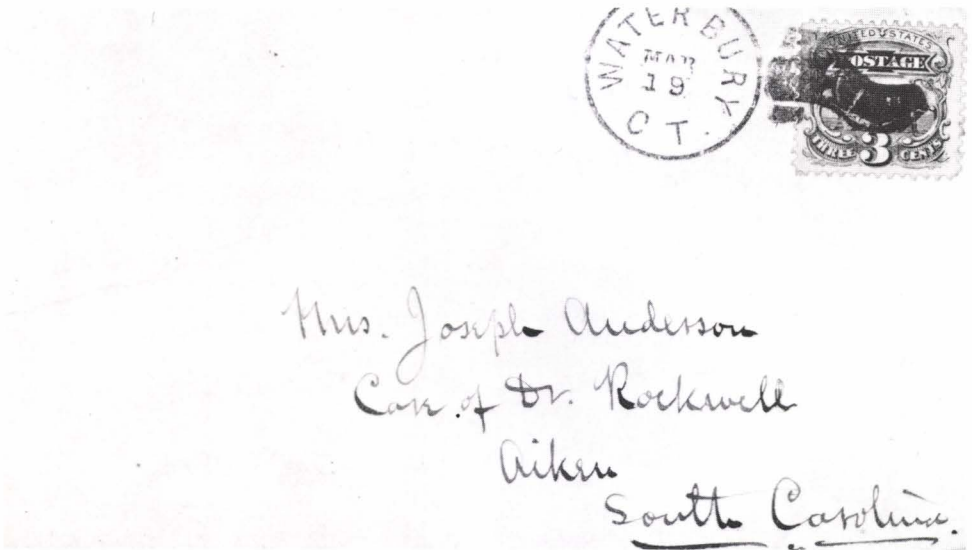 WATERBURY
MAR
19
CT.
UNITED STATES
POSTAGE
THREE 3 CENTS
Mrs. Joseph Anderson
Care of Dr. Rockwell
Aiken
South Carolina.